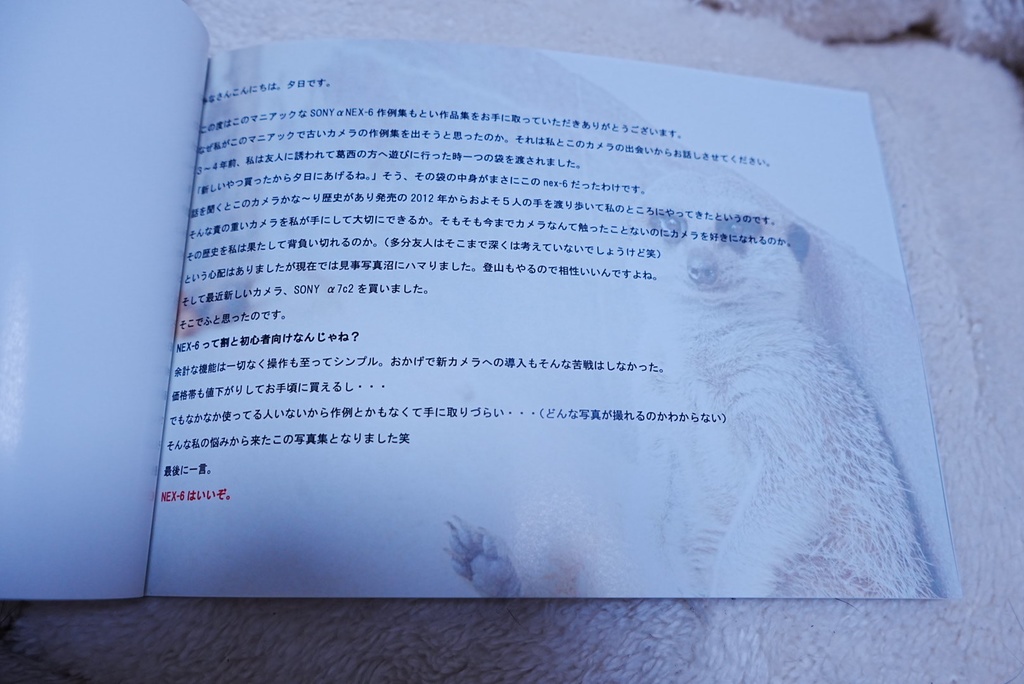 みなさんこんにちは。夕日です。
この度はこのマニアックなSONYαNEX-6作例集もとい作品集をお手に取っていただきありがとうございます。
なぜ私がこのマニアックで古いカメラの作例集を出そうと思ったのか。それは私とこのカメラの出会いからお話しさせてください。
3～4年前、私は友人に誘われて葛西の方へ遊びに行った時一つの袋を渡されました。
「新しいやつ買ったから夕日にあげるね。」そう、その袋の中身がまさにこのnex-6だったわけです。
話を聞くとこのカメラかな～り歴史があり発売の2012年からおよそ5人の手を渡り歩いて私のところにやってきたというのです。
そんな責の重いカメラを私が手にして大切にできるか。そもそも今までカメラなんて触ったことないのにカメラを好きになれるのか。
その歴史を私は果たして背負い切れるのか。(多分友人はそこまで深くは考えていないでしょうけど笑)
という心配はありましたが現在では見事写真沼にハマりました。登山もやるので相性いいんですよね。
そして最近新しいカメラ、SONY α7c2を買いました。
そこでふと思ったのです。
NEX-6って割と初心者向けなんじゃね？
余計な機能は一切なく操作も至ってシンプル。おかげで新カメラへの導入もそんな苦戦はしなかった。
価格帯も値下がりしてお手頃に買えるし・・・
でもなかなか使ってる人いないから作例とかもなくて手に取りづらい・・・(どんな写真が撮れるのかわからない)
そんな私の悩みから来たこの写真集となりました笑
最後に一言。
NEX-6はいいぞ。